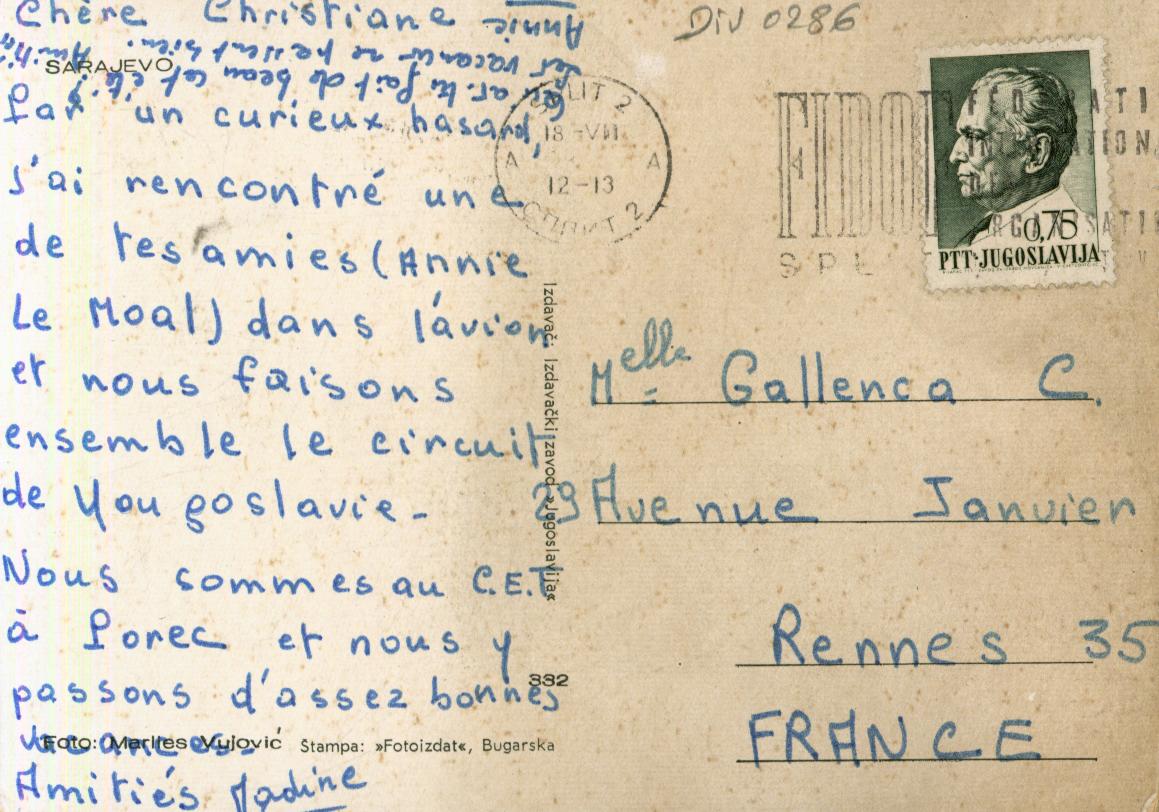 Chère Christiane
Qu'as-tu fait de beau cet été ?
Les vacances se passent bien. Amitiés
Annie
SARAJEVO
Par un curieux hasard,
j'ai rencontré une
de tes amies (Annie
Le Moal) dans l'avion
et nous faisons
ensemble le circuit
de Yougoslavie -
Nous sommes au C.E.T
à Porec et nous y
passons d'assez bonnes
vacances -
Amitiés Nadine
332
Foto: Marlies Vujović Štampa: »Fotoizdat«, Bugarska
Izdavač: Izdavački zavod »Jugoslavija«
DIV 0286
SPLIT 2
18 -VII
A A
12-13
СПЛИТ 2
FIDOF
SPL
0,75
PTT·JUGOSLAVIJA
Melle Gallenca C.
29 Avenue Janvier
Rennes 35
FRANCE